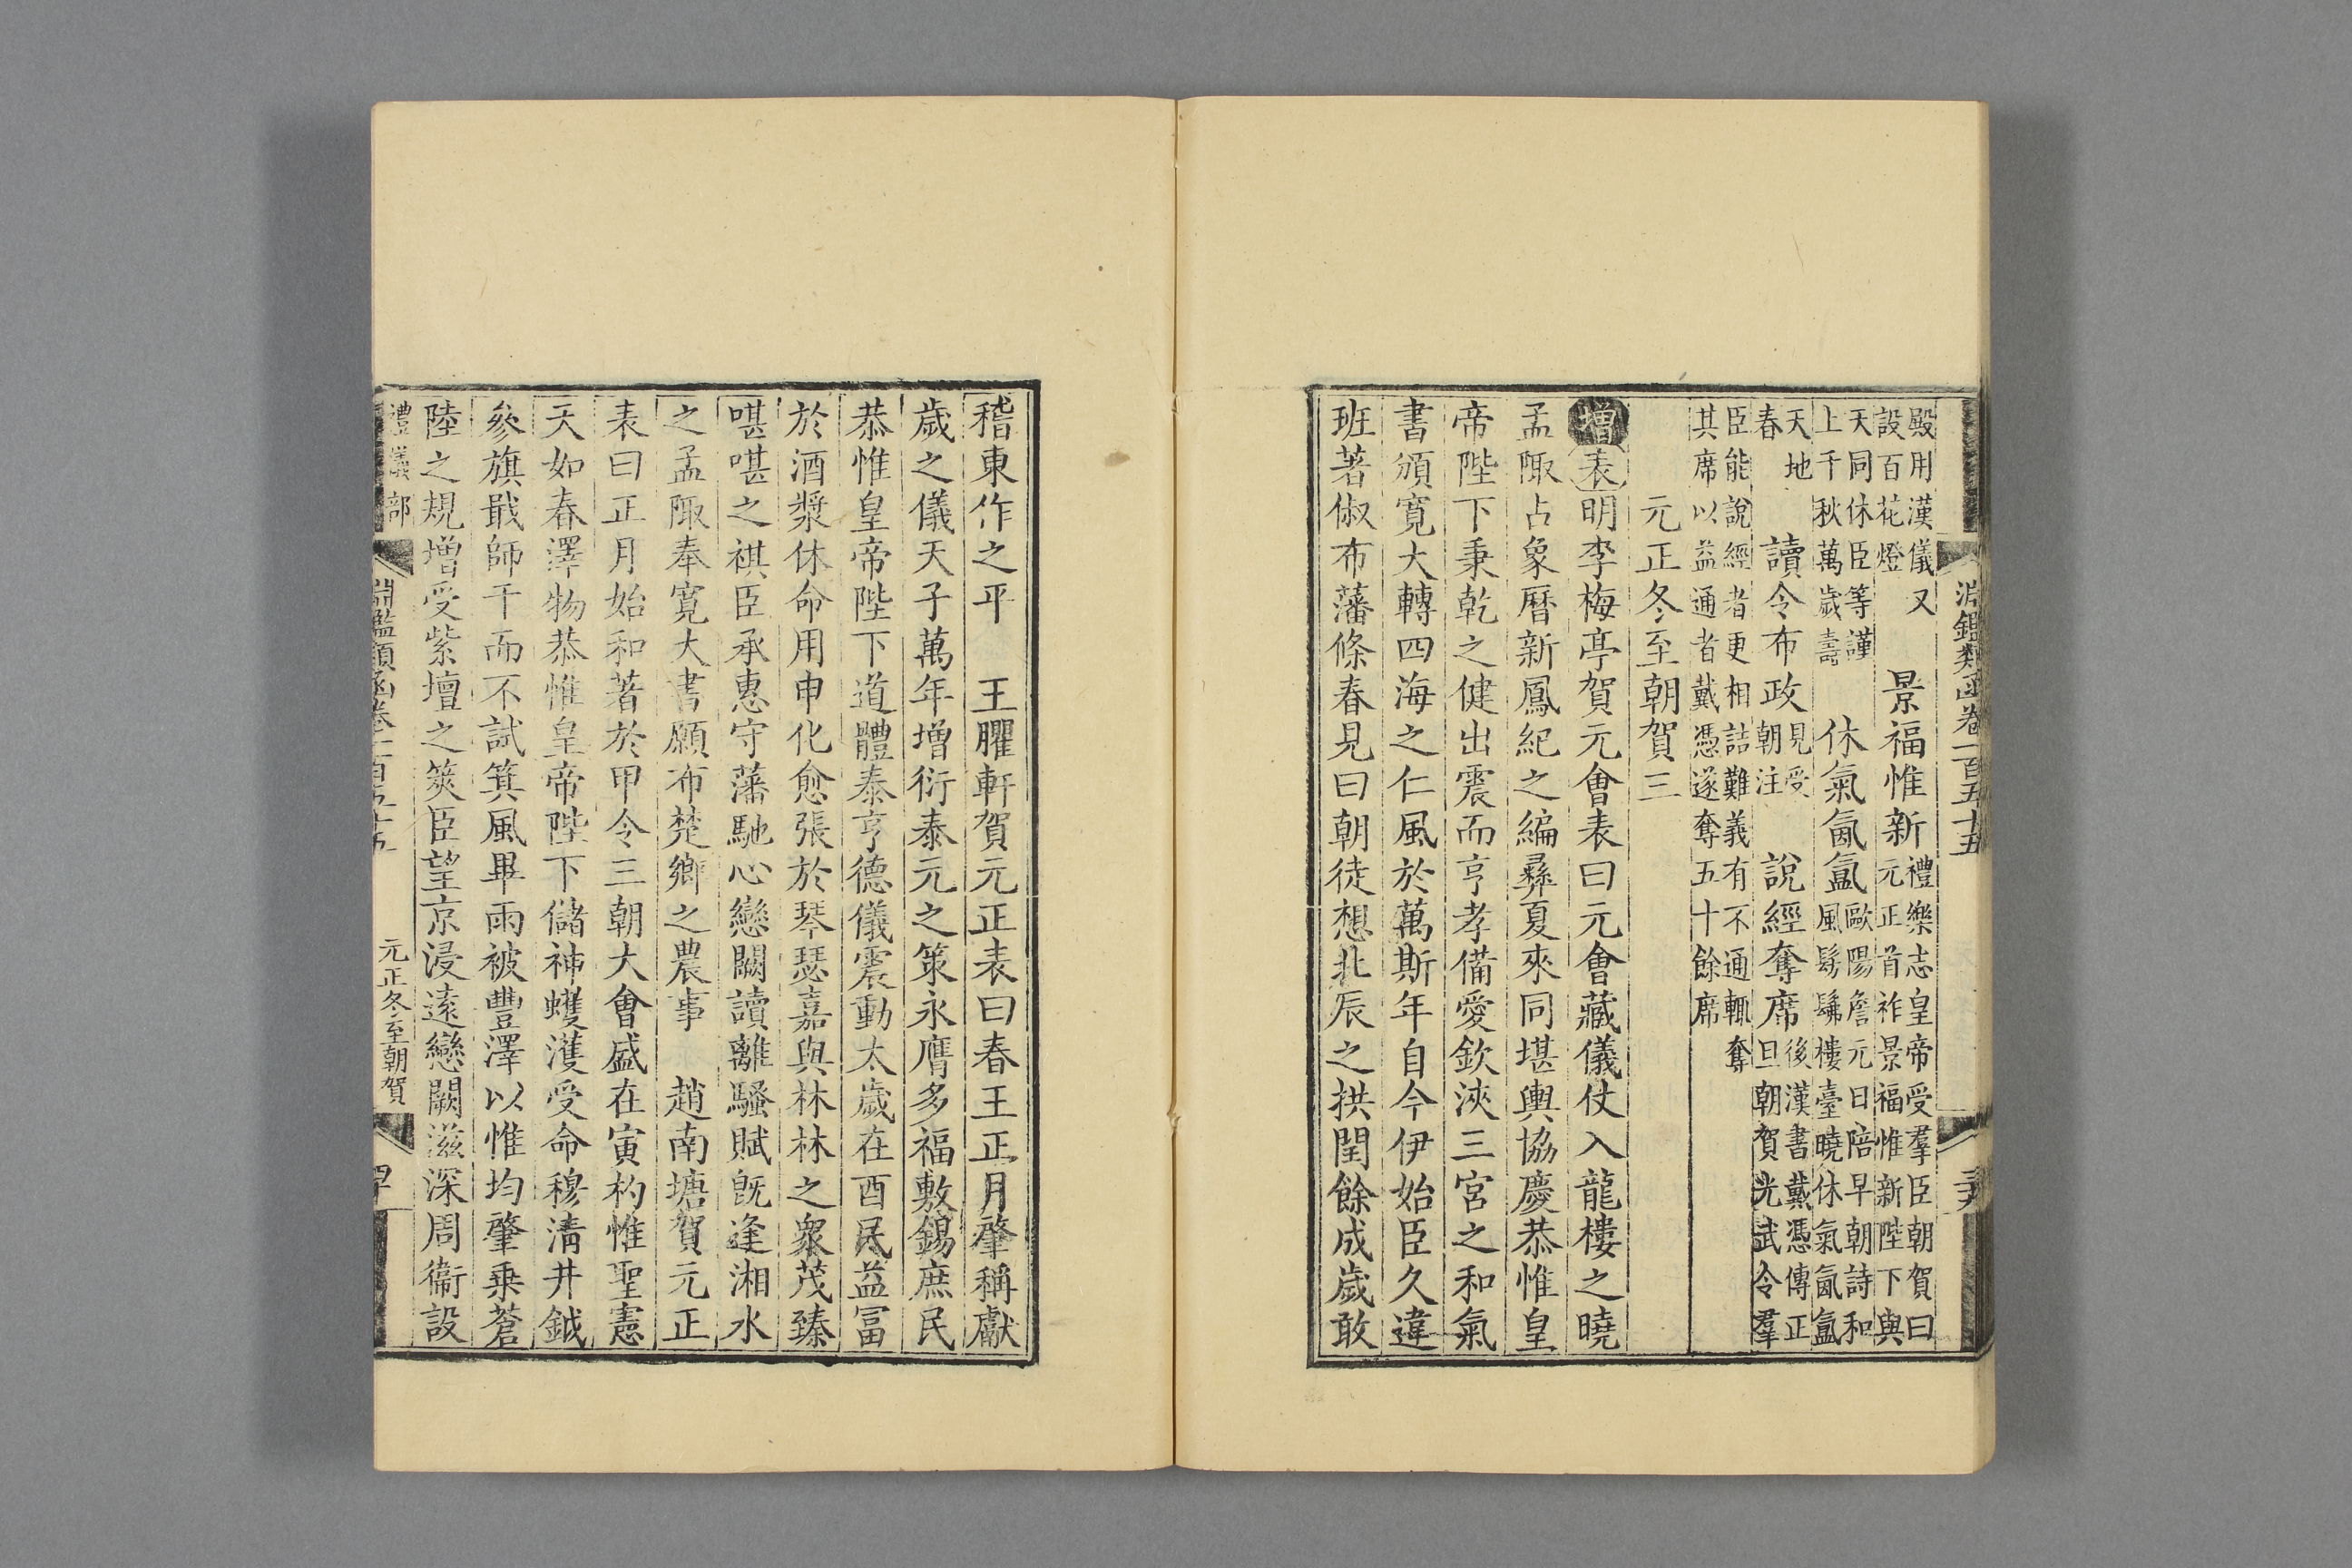 淵鑑類函卷一百五十五
殿用漢儀又
設百花燈
景福惟新
禮樂志皇帝受羣臣朝賀曰
元正首祚景福惟新陛下與
天同休臣等謹
上千秋萬歲壽
休氣氤氳
歐陽詹元日陪早朝詩和
風髣髴樓臺曉休氣氤氳
天地
春
讀令布政
見受
朝注
說經奪席
後漢書戴憑傳正
旦朝賀光武令羣
臣能說經者更相詰難義有不通輒奪
其席以益通者戴憑遂奪五十餘席
元正冬至朝賀三
增表明李梅亭賀元會表曰元會藏儀仗入龍樓之曉
孟陬占象曆新鳳紀之編彞夏來同堪輿協慶恭惟皇
帝陛下秉乾之健出震而亨孝備愛欽浹三宮之和氣
書頒寬大轉四海之仁風於萬斯年自今伊始臣久違
班著俶布藩條春見曰朝徒想北辰之拱閏餘成歲敢
稽東作之平　王臞軒賀元正表曰春王正月肇稱獻
歲之儀天子萬年增衍泰元之策永膺多福敷錫庶民
恭惟皇帝陛下道體泰亨德儀震動太歲在酉民益富
於酒漿休命用申化愈張於琴瑟嘉與林林之衆茂臻
喈喈之祺臣承惠守藩馳心戀闕讀離騷賦旣逢湘水
之孟陬奉寬大書願布楚鄉之農事　趙南塘賀元正
表曰正月始和著於甲令三朝大會盛在寅杓惟聖憲
天如春澤物恭惟皇帝陛下儲神蠖濩受命穆清井鉞
參旗戢師干而不試箕風畢雨被豐澤以惟均肇乗蒼
陸之規增受紫壇之筴臣望京浸遠戀闕滋深周衞設
禮儀部
淵鑑類函卷一百五十五
元正冬至朝賀